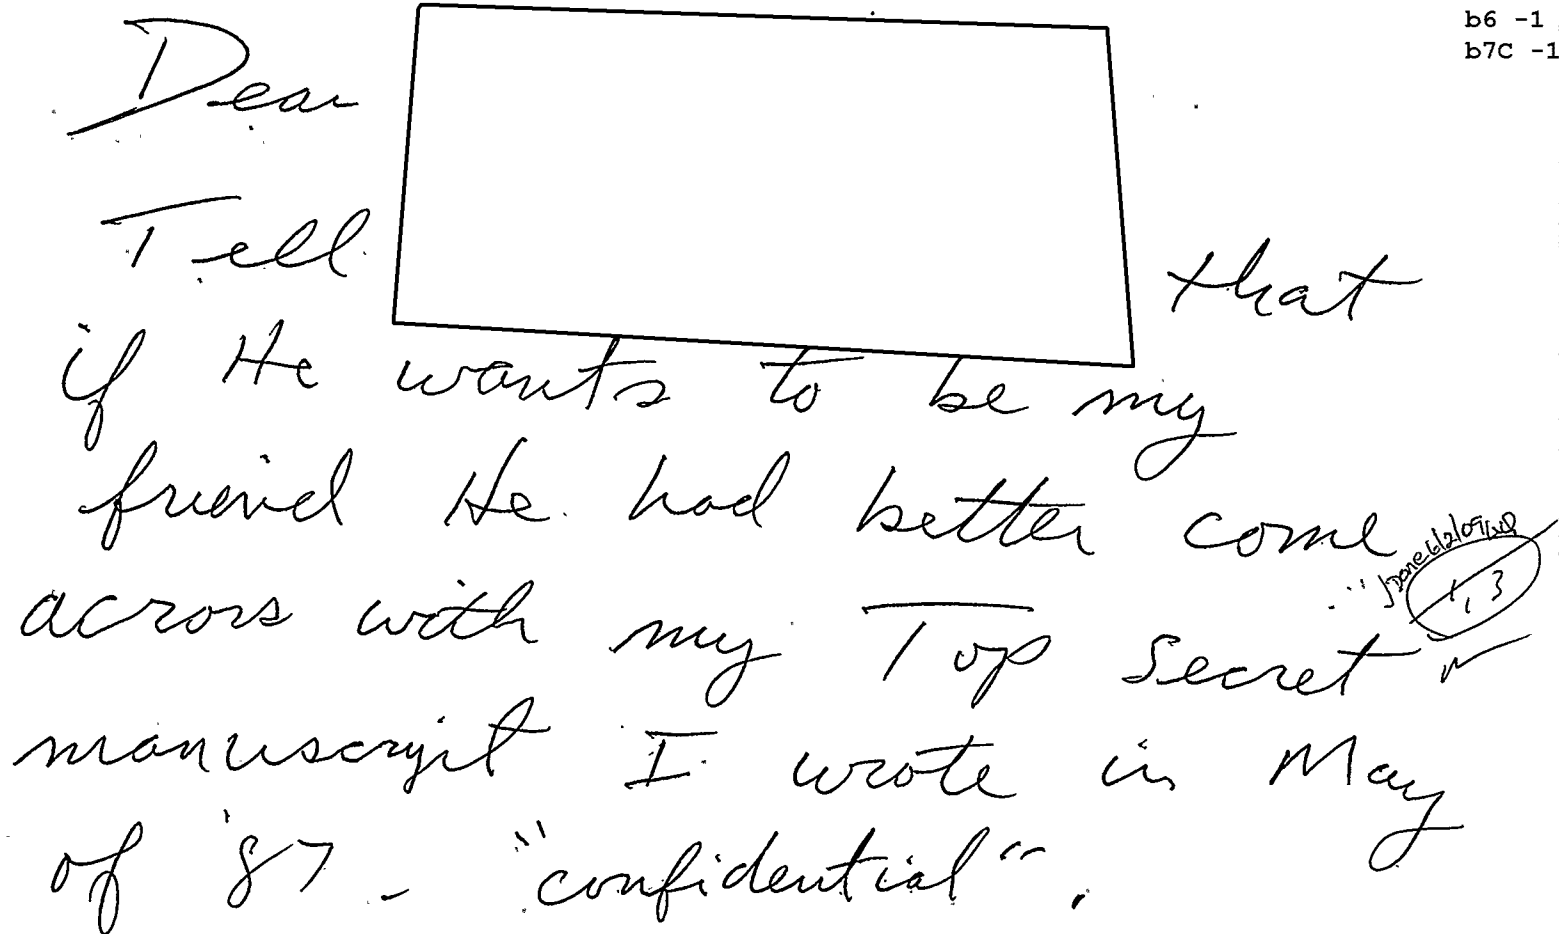 b6 -1
b7C -1
Dear
Tell that
if He wants to be my
friend He had better come
across with my Top Secret
manuscript I wrote in May
of '87 - "confidential".
Done 6/2/09
1, 3